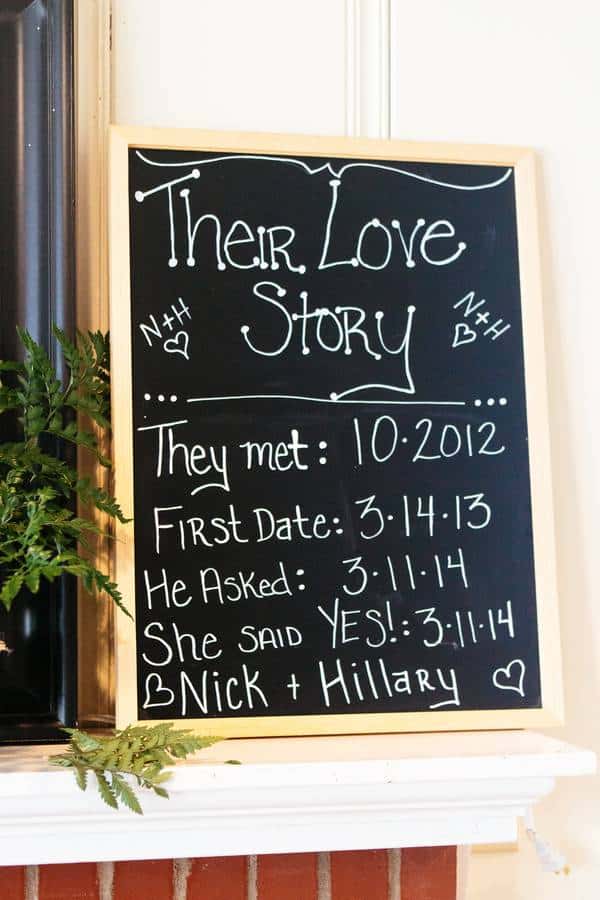 Their Love
Story
N+H
N+H
They met: 10·2012
First Date: 3·14·13
He Asked: 3·11·14
She said YES!: 3·11·14
♡Nick + Hillary ♡